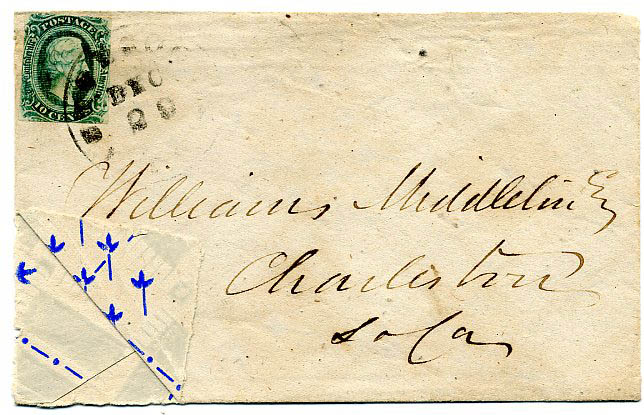 POSTAGE
10 CENTS
DEC
29
Williams Middleton Esq
Charleston
So Ca